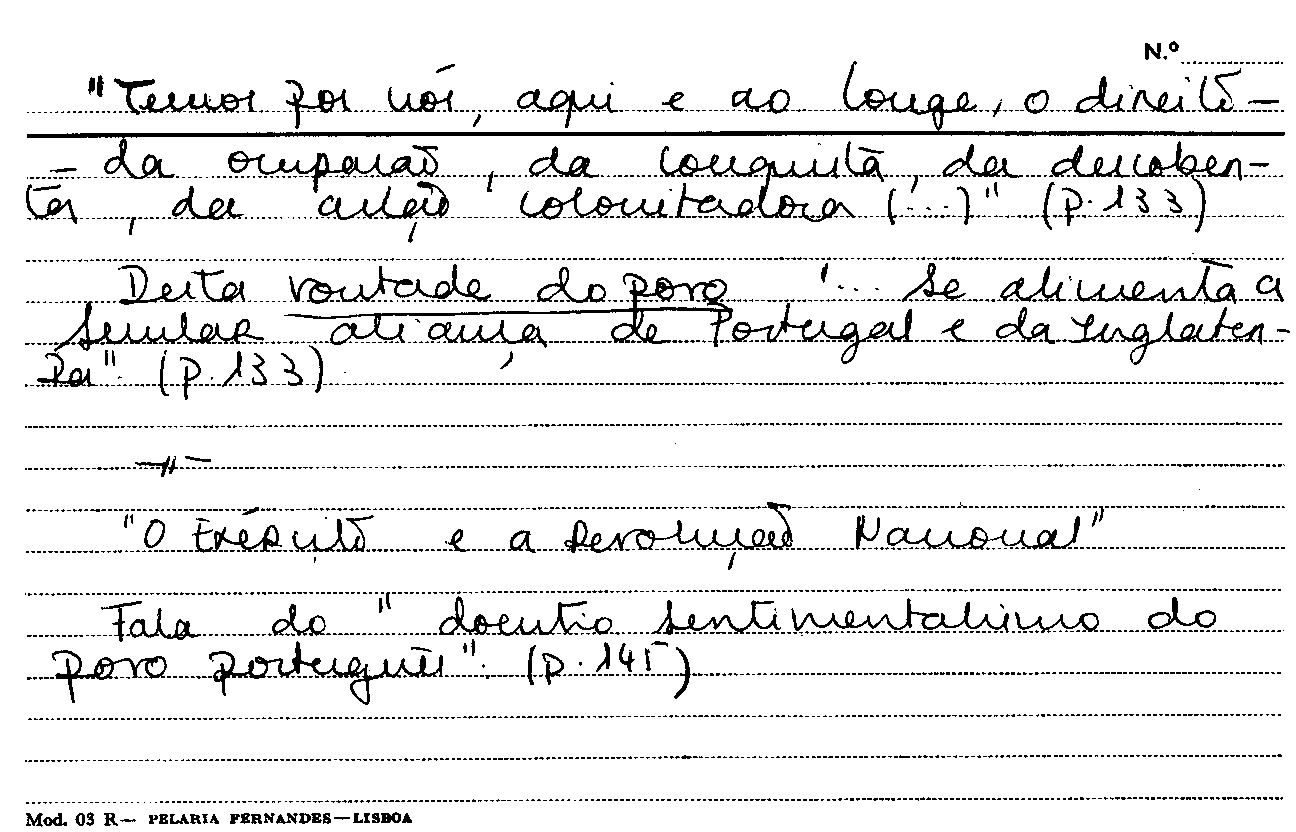 N.º
"Temos por nós, aqui e ao longe, o direito –
– da ocupação, da conquista, da descober-
ta, da acção colonizadora (...)" (p. 133)
Desta vontade do povo "... se alimenta a
secular aliança de Portugal e da Inglater-
ra". (p. 133)
–//–
"O Exército e a Revolução Nacional"
Fala do "doentio sentimentalismo do
povo português". (p. 145)
Mod. 03 R— PELARIA FERNANDES—LISBOA